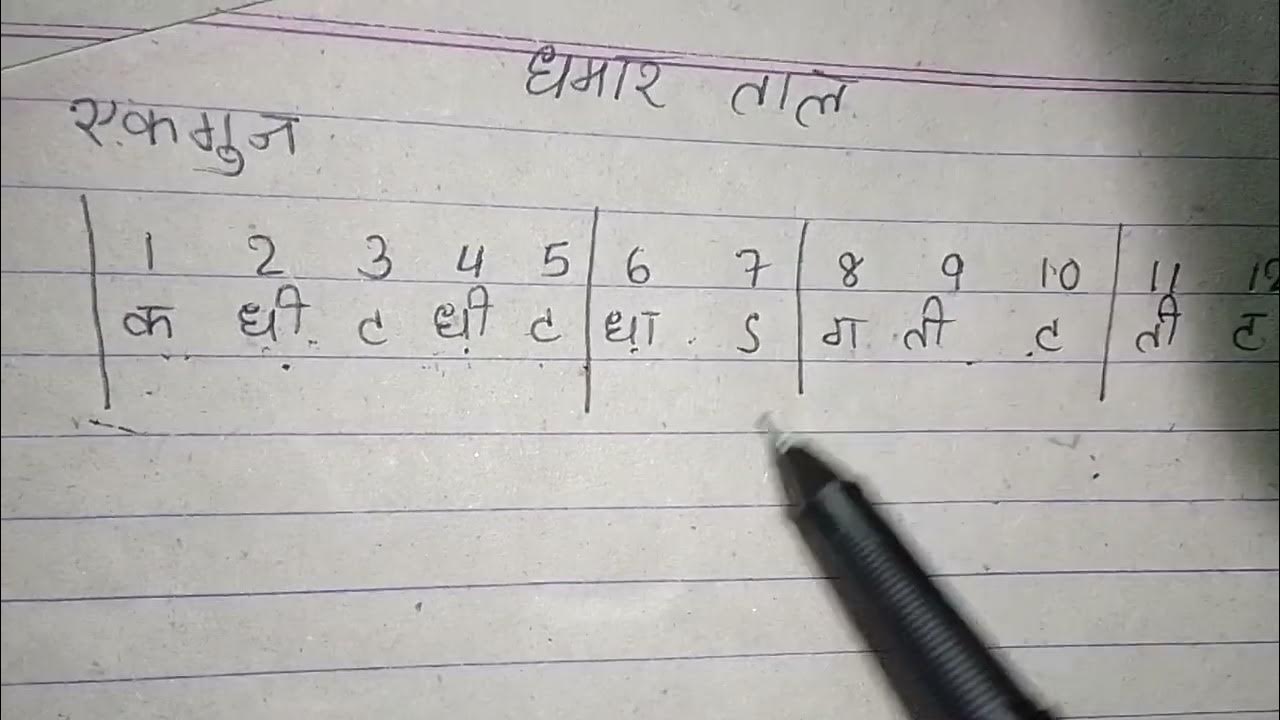 धमार ताल
एकगुन
1 2 3 4 5 | 6 7 | 8 9 10 | 11 12
क धी ट धी ट | धा ऽ | ग ती ट | ती ट